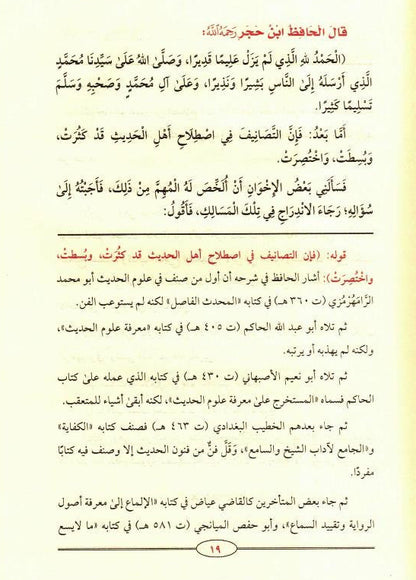 قَالَ الْحَافِظُ ابْنُ حَجَرٍ رَحِمَهُ اللَّهُ:
(الْحَمْدُ لِلهِ الَّذِي لَمْ يَزَلْ عَلِيمًا قَدِيرًا، وَصَلَّىٰ اللهُ عَلَىٰ سَيِّدِنَا مُحَمَّدٍ
الَّذِي أَرْسَلَهُ إِلىٰ النَّاسِ بَشِيرًا وَنَذِيرًا، وَعَلَىٰ آلِ مُحَمَّدٍ وَصَحْبِهِ وَسَلَّمَ
تَسْلِيمًا كَثِيرًا.
أَمَّا بَعْدُ: فَإِنَّ التَّصَانِيفَ فِي اصْطِلَاحِ أَهْلِ الْحَدِيثِ قَدْ كَثُرَتْ،
وَبُسِطَتْ، وَاخْتُصِرَتْ.
فَسَأَلَنِي بَعْضُ الْإِخْوَانِ أَنْ أُلَخِّصَ لَهُ الْمُهِمَّ مِنْ ذَلِكَ، فَأَجَبْتُهُ إِلىٰ
سُؤَالِهِ؛ رَجَاءَ الْانْدِرَاجِ فِي تِلْكَ الْمَسَالِكِ، فَأَقُولُ:
قوله: (فإن التصانيف في اصطلاح أهل الحديث قد كَثُرَتْ، وبُسطتْ،
واخْتُصِرَتْ): أشار الحافظ في شرحه أن أول من صنف في علوم الحديث أبو محمد
الرَّامَهُرْمُزي (ت ٣٦٠ هـ) في كتابه «المحدث الفاصل» لكنه لم يستوعب الفن.
ثم تلاه أبو عبد الله الحاكم (ت ٤٠٥ هـ) في كتابه «معرفة علوم الحديث»،
ولكنه لم يهذبه أو يرتبه.
ثم تلاه أبو نعيم الأصبهاني (ت ٤٣٠ هـ) في كتابه الذي عمله علىٰ كتاب
الحاكم فسماه «المستخرج علىٰ معرفة علوم الحديث»، لكنه أبقىٰ أشياء للمتعقب.
ثم جاء بعدهم الخطيب البغدادي (ت ٤٦٣ هـ) فصنف كتابه «الكفاية»
و«الجامع لآداب الشيخ والسامع»، وَقَلَّ فنٌّ من فنون الحديث إلا وصنف فيه كتابًا
مفردًا.
ثم جاء بعض المتأخرين كالقاضي عياض في كتابه «الإلماع إلىٰ معرفة أصول
الرواية وتقييد السماع»، وأبو حفص الميانجي (ت ٥٨١ هـ) في كتابه «ما لايسع
١٩